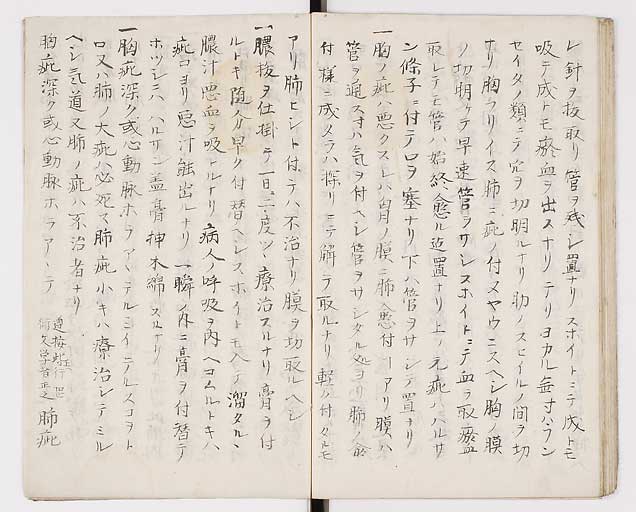 レ針ヲ抜取リ管ヲ残シ置ナリスホイトニテ成トモ
吸テ成トモ瘀血ヲ出スナリテリヨカル壱寸ハラン
セイタノ類ニテ穴ヲ切明ルナリ肋ノスセイルノ間ヲ切
ナリ胸ウラリイス肺ニ疵ノ付ヌヤウニスヘシ胸ノ膜
ノ切明タラ早速管ヲワシスホイトニテ血ヲ取瘀血
取レテモ管ハ始終愈ル迄置ナリ上ノ元疵ハハルサ
ン條子ニ付テ口ヲ塞ナリ下ハ管ヲサシテ置ナリ
一胸ノ疵ハ悪クスレハ肯ノ膜ニ肺ヘ愈付ーアリ膜ハ
管ヲ通ス寸ハ気ヲ付ヘシ管ヲサシタル処ヨリ肺ノ愈
付様ニ成タラハ探リニテ解テ取ルナリ軽ク付タルモ
アリ肺ヒシト付テハ不治ナリ膜ヲ切取ルヘシ
一膿抜ヲ仕掛テ一日ニ二度ツヽ療治スルナリ膏ヲ付
ルトキ随分早ク付替ヘシスホイトモ入テ溜タルハ
膿汁悪血ヲ吸トルナリ病人ノ呼吸ヲ内ヘコムルトキハ
疵口ヨリ悪汁能出ルナリ一瞬ノ内ニ膏ヲ付替テ
ホツシニハハルサン盖膏押木綿スルナリ
一胸疵深ク或心動脉ホヲアヽテルミイニノルスコヲト
ロ又ハ肺ノ大疵ハ必死ス肺疵小キハ療治シテミル
ヘシ気道又肺ノ疵ハ不治者ナリ
胸疵深ク或心動脉ホラアヽテ
肺疵